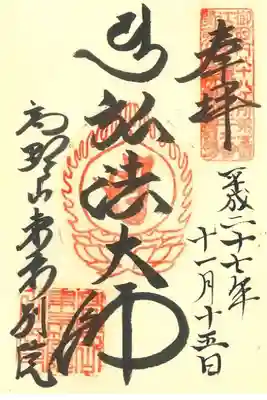 奉拝
平成二十七年
十一月十五日
弘法大師
高野山東京別院